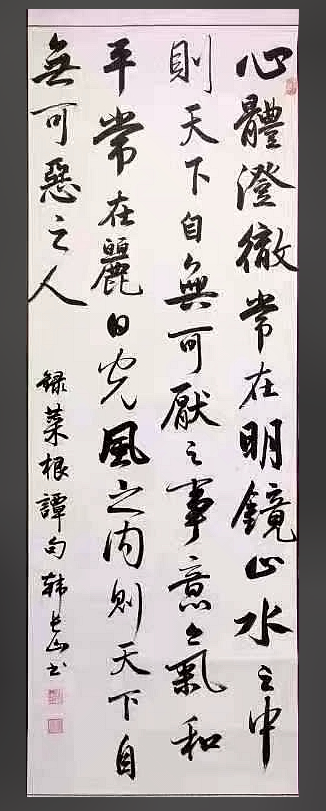 心體澄徹常在明鏡止水之中
則天下自無可厭之事意氣和
平常在麗日光風之内則天下自
無可惡之人
録菜根譚句韩长山书